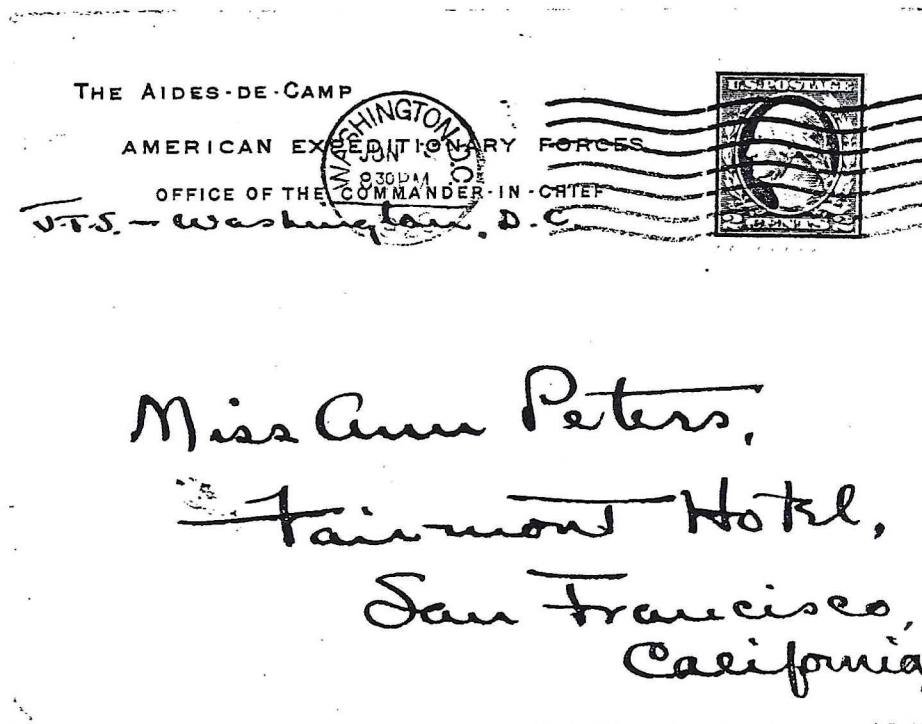 THE AIDES-DE-CAMP
AMERICAN EXPEDITIONARY FORCES
OFFICE OF THE COMMANDER-IN-CHIEF
Washington, D.C
WASHINGTON, D.C.
JUN
830PM
U.S. POSTAGE
2 CENTS 2
Miss Ann Peters,
Fairmont Hotel,
San Francisco,
California